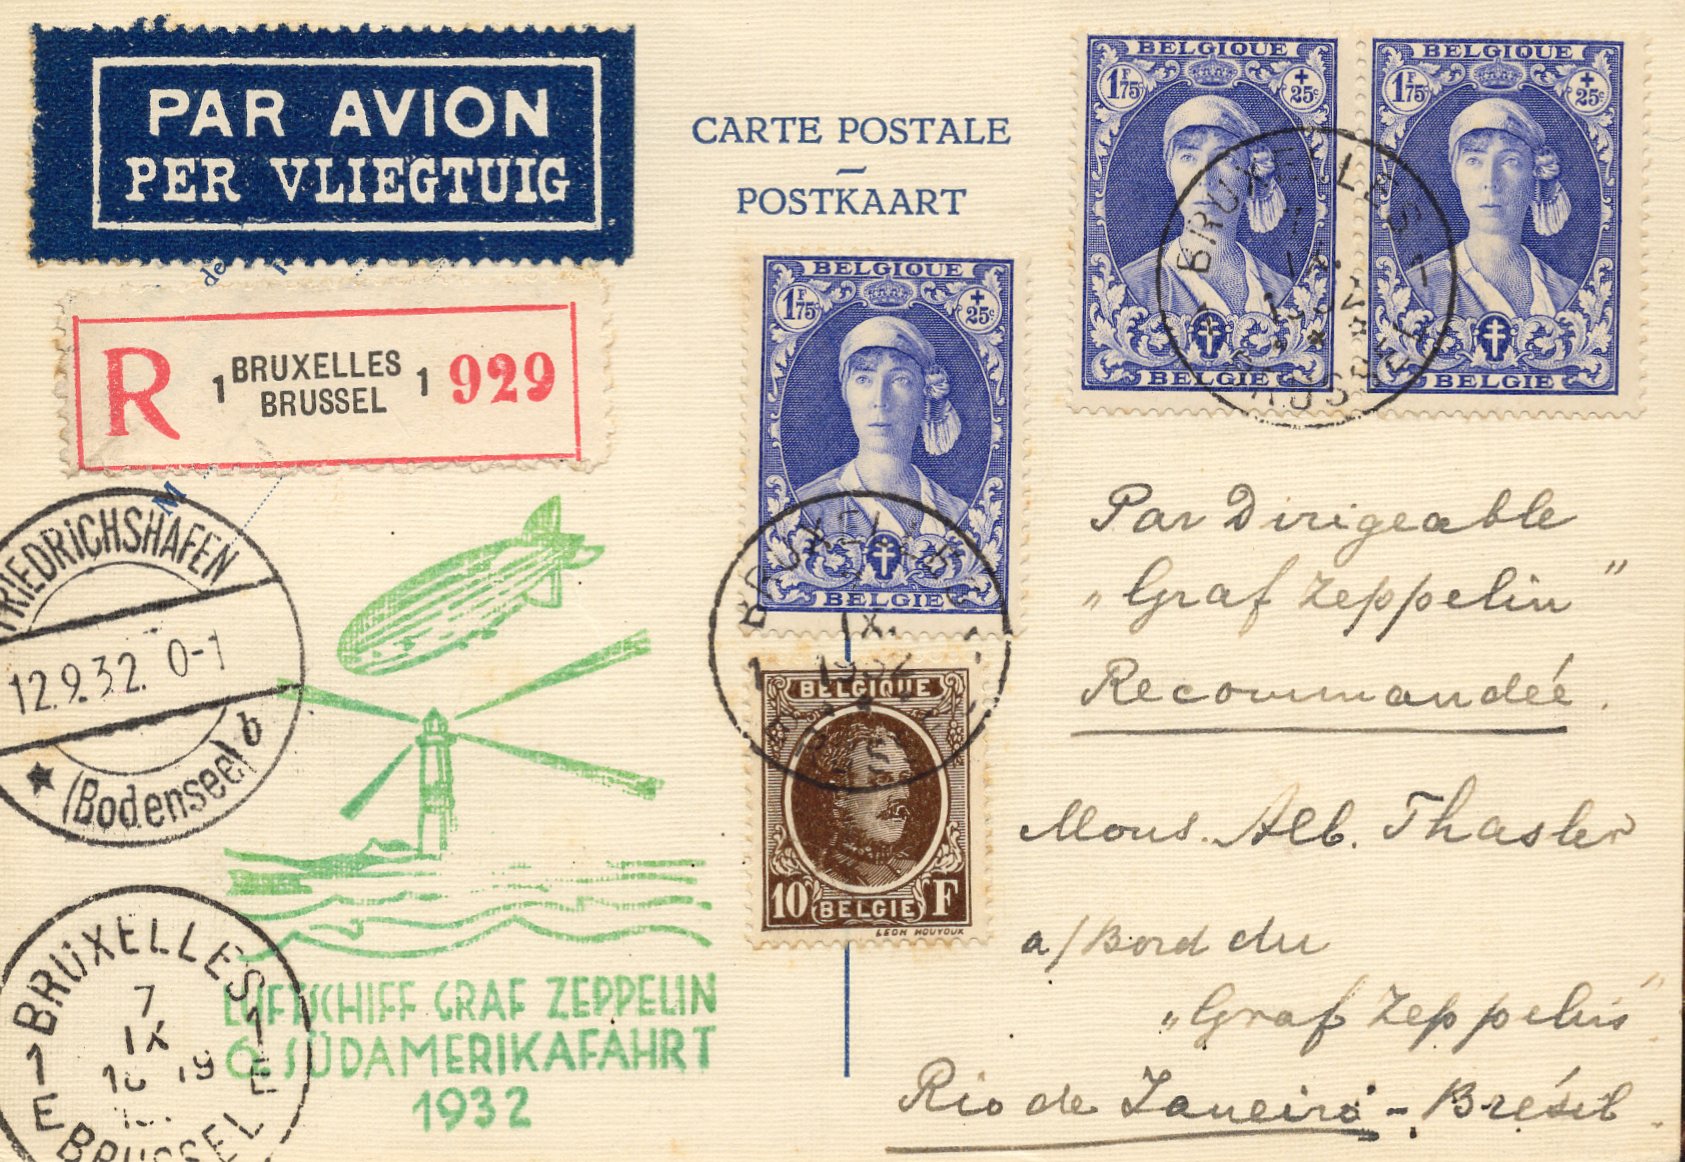 PAR AVION
PER VLIEGTUIG
CARTE POSTALE
POSTKAART
R 1 BRUXELLES 1 929
BRUSSEL
de
M
BELGIQUE
1F75 + 25c
BELGIE
BELGIQUE
1F75 + 25c
BELGIE
BRUXELLES 1
IX
BELGIQUE
1F75 + 25c
BELGIE
IX
1932
BELGIQUE
10 BELGIE F
LEON HOUYOUX
FRIEDRICHSHAFEN
12.9.32. 0-1
★ (Bodensee) b
LUFTSCHIFF GRAF ZEPPELIN
6. SÜDAMERIKAFAHRT
1932
1 BRUXELLES 1
7
IX
19
E BRUSSEL E
Par Dirigeable
„Graf Zeppelin"
Recommandée.
Mons. Alb. Thasler
a/Bord du
„Graf Zeppelin"
Rio de Janeiro - Brésil.